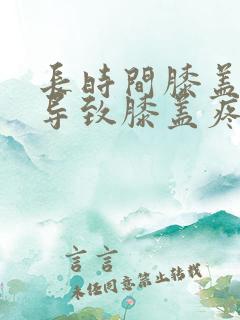 長時間膝蓋
导致膝盖疼
言言
未经同意禁止转载